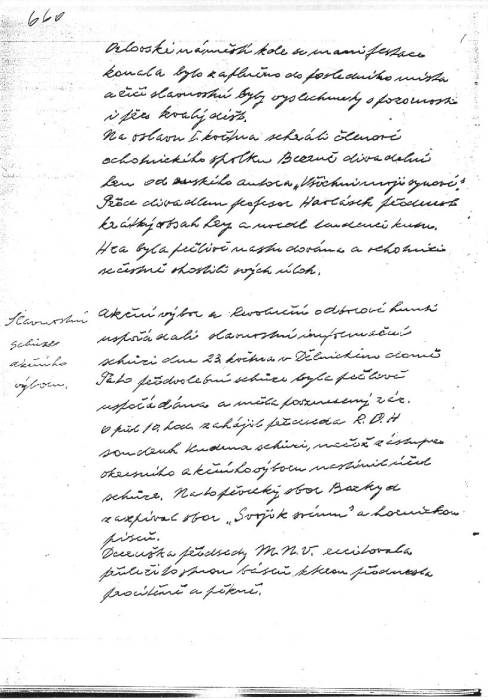 660
Orlovské náměstí kde se manifestace
konala bylo zaplněno do posledního místa
a řeči slavnostní byly vyslechnuty s pozorností
i přes trvalý déšť.
Na oslavu 1. května sehráli členové
ochotnického spolku Bezruč divadelní
hru od ruského autora „Všichni moji synové“.
Před divadlem profesor Harlásek přednesl
krátký obsah hry a uvedl tendenci kusu.
Hra byla pečlivě nastudována a ochotníci
se čestně zhostili svých úloh.
Slavnostní
schůze
akčního
výboru.
Akční výbor a Revoluční odborové hnutí
uspořádali slavnostní informační
schůzi dne 23. května v Dělnickém domě
Tato předvolební schůze byla pečlivě
uspořádána a měla povznesený ráz.
O půl 10. hod. zahájil předseda R.O.H
soudruh Kudena schůzi, načež zástupce
okresního akčního výboru nastínil účel
schůze. Na to pěvecký sbor Bezkyd
zazpíval sbor „Svoji k svému“ a hornickou
píseň.
Dceruška předsedy M.N.V. recitovala
příležitostnou báseň kterou přednesla
procítěně a pěkně.